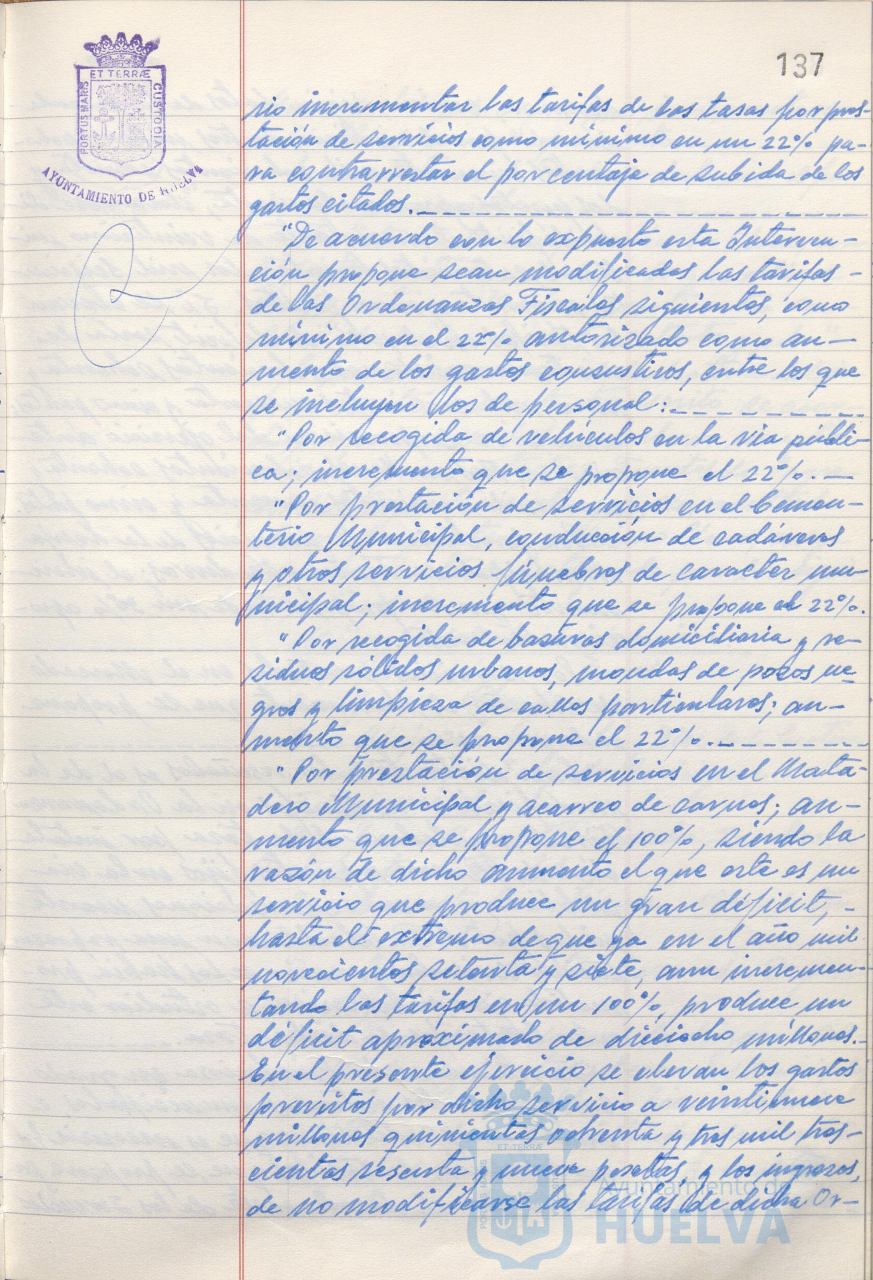 137
PORTUS MARIS ET TERRÆ CUSTODIA
AYUNTAMIENTO DE HUELVA
rio incrementar las tarifas de las tasas por pres-
tación de servicios como mínimo en un 22% pa-
ra contrarrestar el porcentaje de subida de los
gastos citados.
"De acuerdo con lo expuesto esta Interven-
ción propone sean modificadas las tarifas -
de las Ordenanzas Fiscales siguientes, como
mínimo en el 22% autorizado como au-
mento de los gastos consuntivos, entre los que
se incluyen los de personal:
"Por recogida de vehículos en la vía públi-
ca; incremento que se propone el 22%. -
"Por prestación de servicios en el Cemen-
terio Municipal, conducción de cadáveres
y otros servicios fúnebres de caracter mu-
nicipal; incremento que se propone el 22%.
"Por recogida de basuras domiciliaria y re-
siduos sólidos urbanos, mondas de pozos ne-
gros y limpieza de calles particulares; au-
mento que se propone el 22%.
"Por prestación de servicios en el Mata-
dero Municipal y acarreo de carnes; au-
mento que se propone el 100%, siendo la
razón de dicho aumento el que este es un
servicio que produce un gran déficit, -
hasta el extremo de que ya en el año mil
novecientos setenta y siete, aun incremen-
tando las tarifas en un 100%, produce un
déficit aproximado de dieciocho millones.-
En el presente ejercicio se elevan los gastos
previstos por dicho servicio a veintinueve
millones quinientas ochenta y tres mil tres-
cientas sesenta y nueve pesetas, y los ingresos,
de no modificarse las tarifas de dicha Or-
ET TERRÆ
Ayuntamiento de
HUELVA